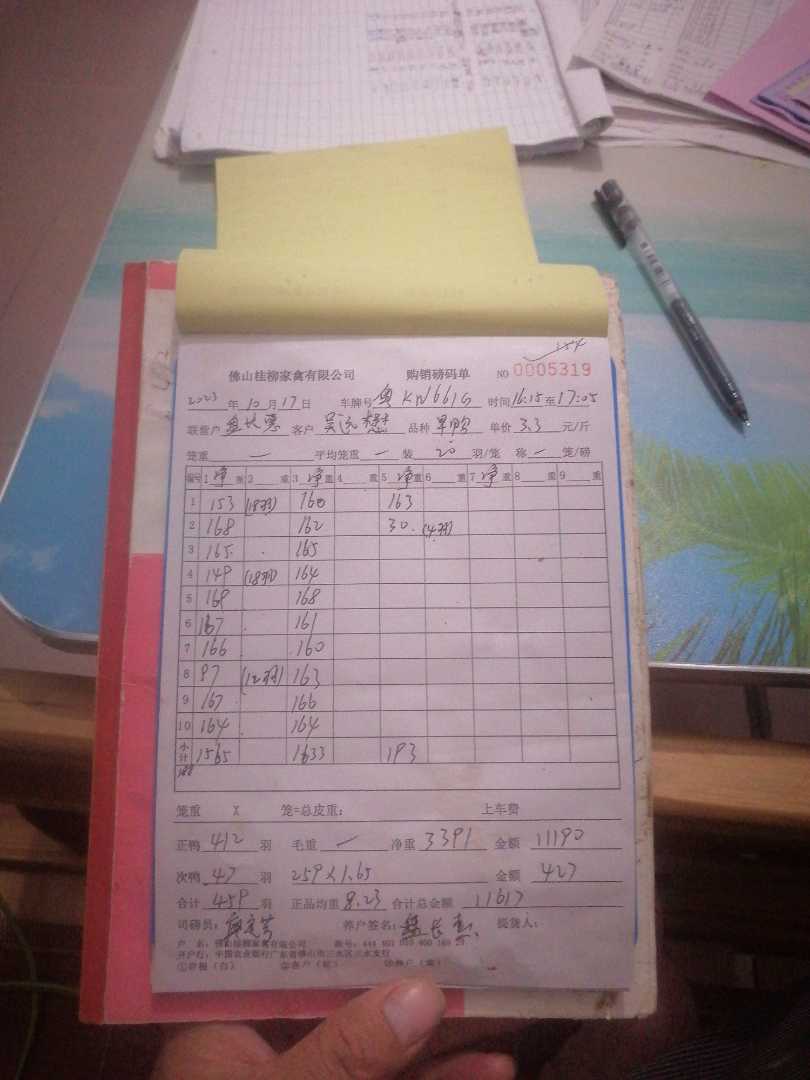 154
佛山桂柳家禽有限公司 购销磅码单 NO 0005319
2023 年 10 月 17 日 车牌号 粤KN661G 时间 16:15 至 17:05
联营户 客户 吴 品种 单价 3.3 元/斤
笼重 — 平均笼重 — 装 20 羽/笼 称 — 笼/磅
编号 1 净 重 2 重 3 净 重 4 重 5 净 重 6 重 7 净 重 8 重 9 重
1 153 (18羽) 160 163
2 168 162 30. (4羽)
3 165. 165
4 149 (18羽) 164
5 169 168
6 167 161
7 166 160
8 97 (12羽) 163
9 167 166
10 164 164
小计 1565 1633 193
笼重 X 笼=总皮重: 上车费
正鸭 412 羽 毛重 — 净重 3391 金额 11190
次鸭 47 羽 259×1.65 金额 427
合计 459 羽 正品均重 8.23 合计总金额 11617
司磅员: 养户签名: 提货人:
户 名:佛山桂柳家禽有限公司 账号:
开户行:中国农业银行广东省佛山市三水区三水支行
①存根(白) ②客户(红)